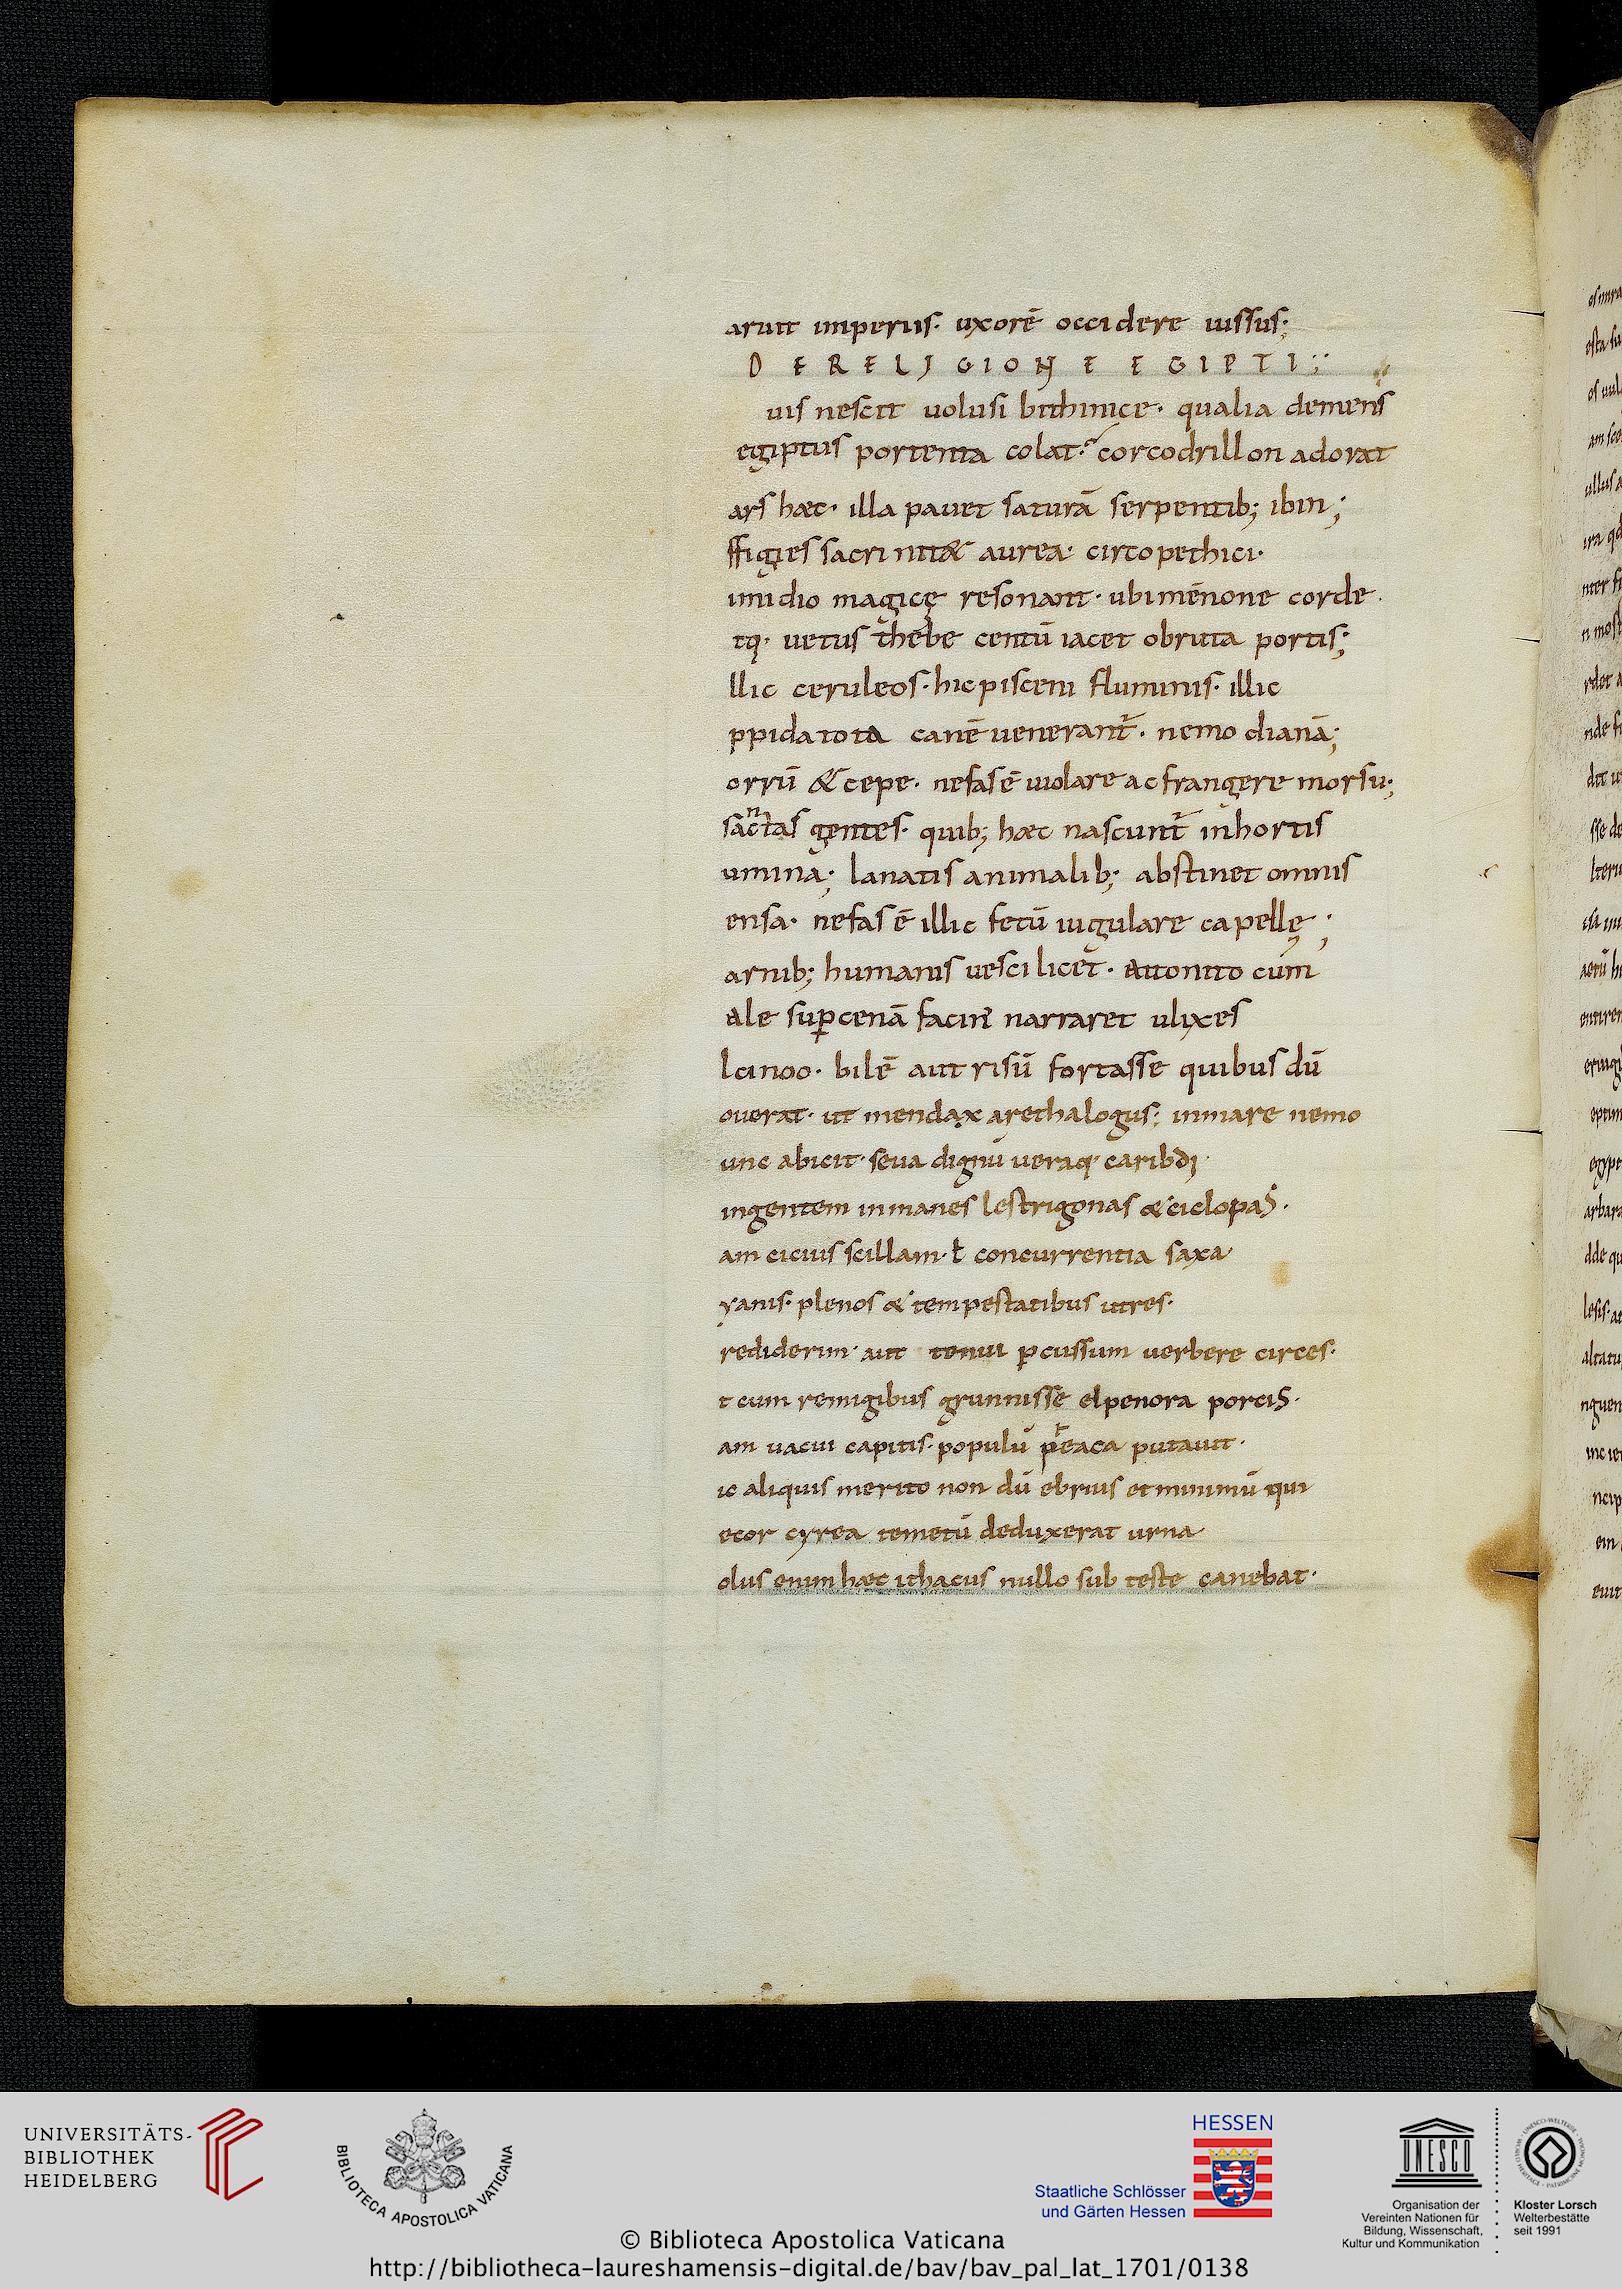 aruit imperiis· uxorē occidere iussus;
DE RELIGIONE EGIPTI;:
uis nescit uolusi bithinice· qualia demens
egiptus portenta colat· corcodrillon adorat
ars hæc· illa pauet saturā serpentib; ibin;
ffigies sacri nitet aurea· circopethici·
imidio magicę resonant· ubi mēnone corde·
tq· uetus thebe centū iacet obruta portis;
llic ceruleos· hic piscem fluminis· illic
ppida tota canē uenerant̄· nemo dianā;
orrū & cepe· nefas ē uiolare ac frangere morsu;
sanctas gentes· quib; hæc nascunt̄ in hortis
umina; lanatis animalib; abstinet omnis
ensa· nefas ē illic fetū iugulare capellę;
arnib; humanis uesci licet· attonito cum
ale sup cenā facin' narraret ulixes
lcinoo· bilē aut risū fortasse quibus dū
ouerat· ut mendax arethalogus; in mare nemo
unc abicit· seua dignū ueraq· caribdi·
ingentem inmanes lestrigonas & ciclopas·
am cicius scillam· ł concurrentia saxa
yanis· plenos & tempestatibus utres·
rediderim· aut tenui pcussum uerbere circes·
t cum remigibus grunnisse elpenora porcis·
am uacui capitis· populū pheaca putauit·
ic aliquis merito non dū ebrius et minimū qui
ecor cyrea temetū deduxerat urna
olus enim hæc ithacus nullo sub teste canebat·
UNIVERSITÄTS-
BIBLIOTHEK
HEIDELBERG
BIBLIOTECA APOSTOLICA VATICANA
HESSEN
Staatliche Schlösser
und Gärten Hessen
UNESCO
Organisation der
Vereinten Nationen für
Bildung, Wissenschaft,
Kultur und Kommunikation
Kloster Lorsch
Welterbestätte
seit 1991
© Biblioteca Apostolica Vaticana
http://bibliotheca-laureshamensis-digital.de/bav/bav_pal_lat_1701/0138